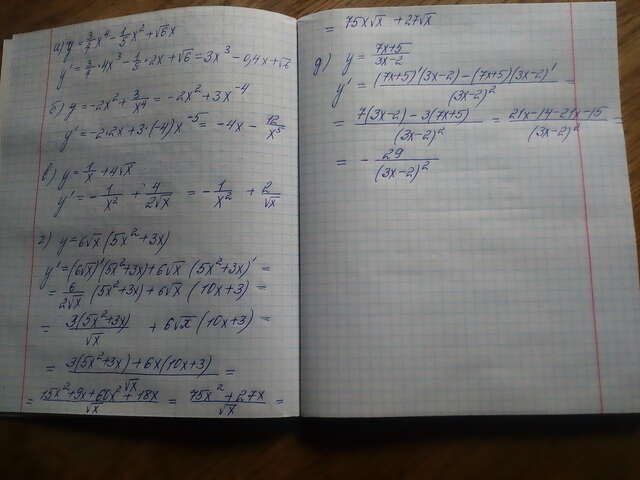 а) y = 3/4 x⁴ - 1/5 x² + √6 x
y' = 3/4 · 4x³ - 1/5 · 2x + √6 = 3x³ - 0,4x + √6
б) y = -2x² + 3/x⁴ = -2x² + 3x⁻⁴
y' = -2·2x + 3·(-4)x⁻⁵ = -4x - 12/x⁵
в) y = 1/x + 4√x
y' = -1/x² + 4/2√x = -1/x² + 2/√x
г) y = 6√x (5x² + 3x)
y' = (6√x)'(5x² + 3x) + 6√x (5x² + 3x)' =
= 6/2√x (5x² + 3x) + 6√x (10x + 3) =
= 3(5x² + 3x)/√x + 6√x (10x + 3) =
= 3(5x² + 3x) + 6x(10x + 3)/√x =
= 15x² + 9x + 60x² + 18x/√x = 75x² + 27x/√x =
= 75x√x + 27√x
д) y = 7x+5/3x-2
y' = (7x+5)'(3x-2) - (7x+5)(3x-2)'/(3x-2)² =
= 7(3x-2) - 3(7x+5)/(3x-2)² = 21x - 14 - 21x - 15/(3x-2)² =
= - 29/(3x-2)²